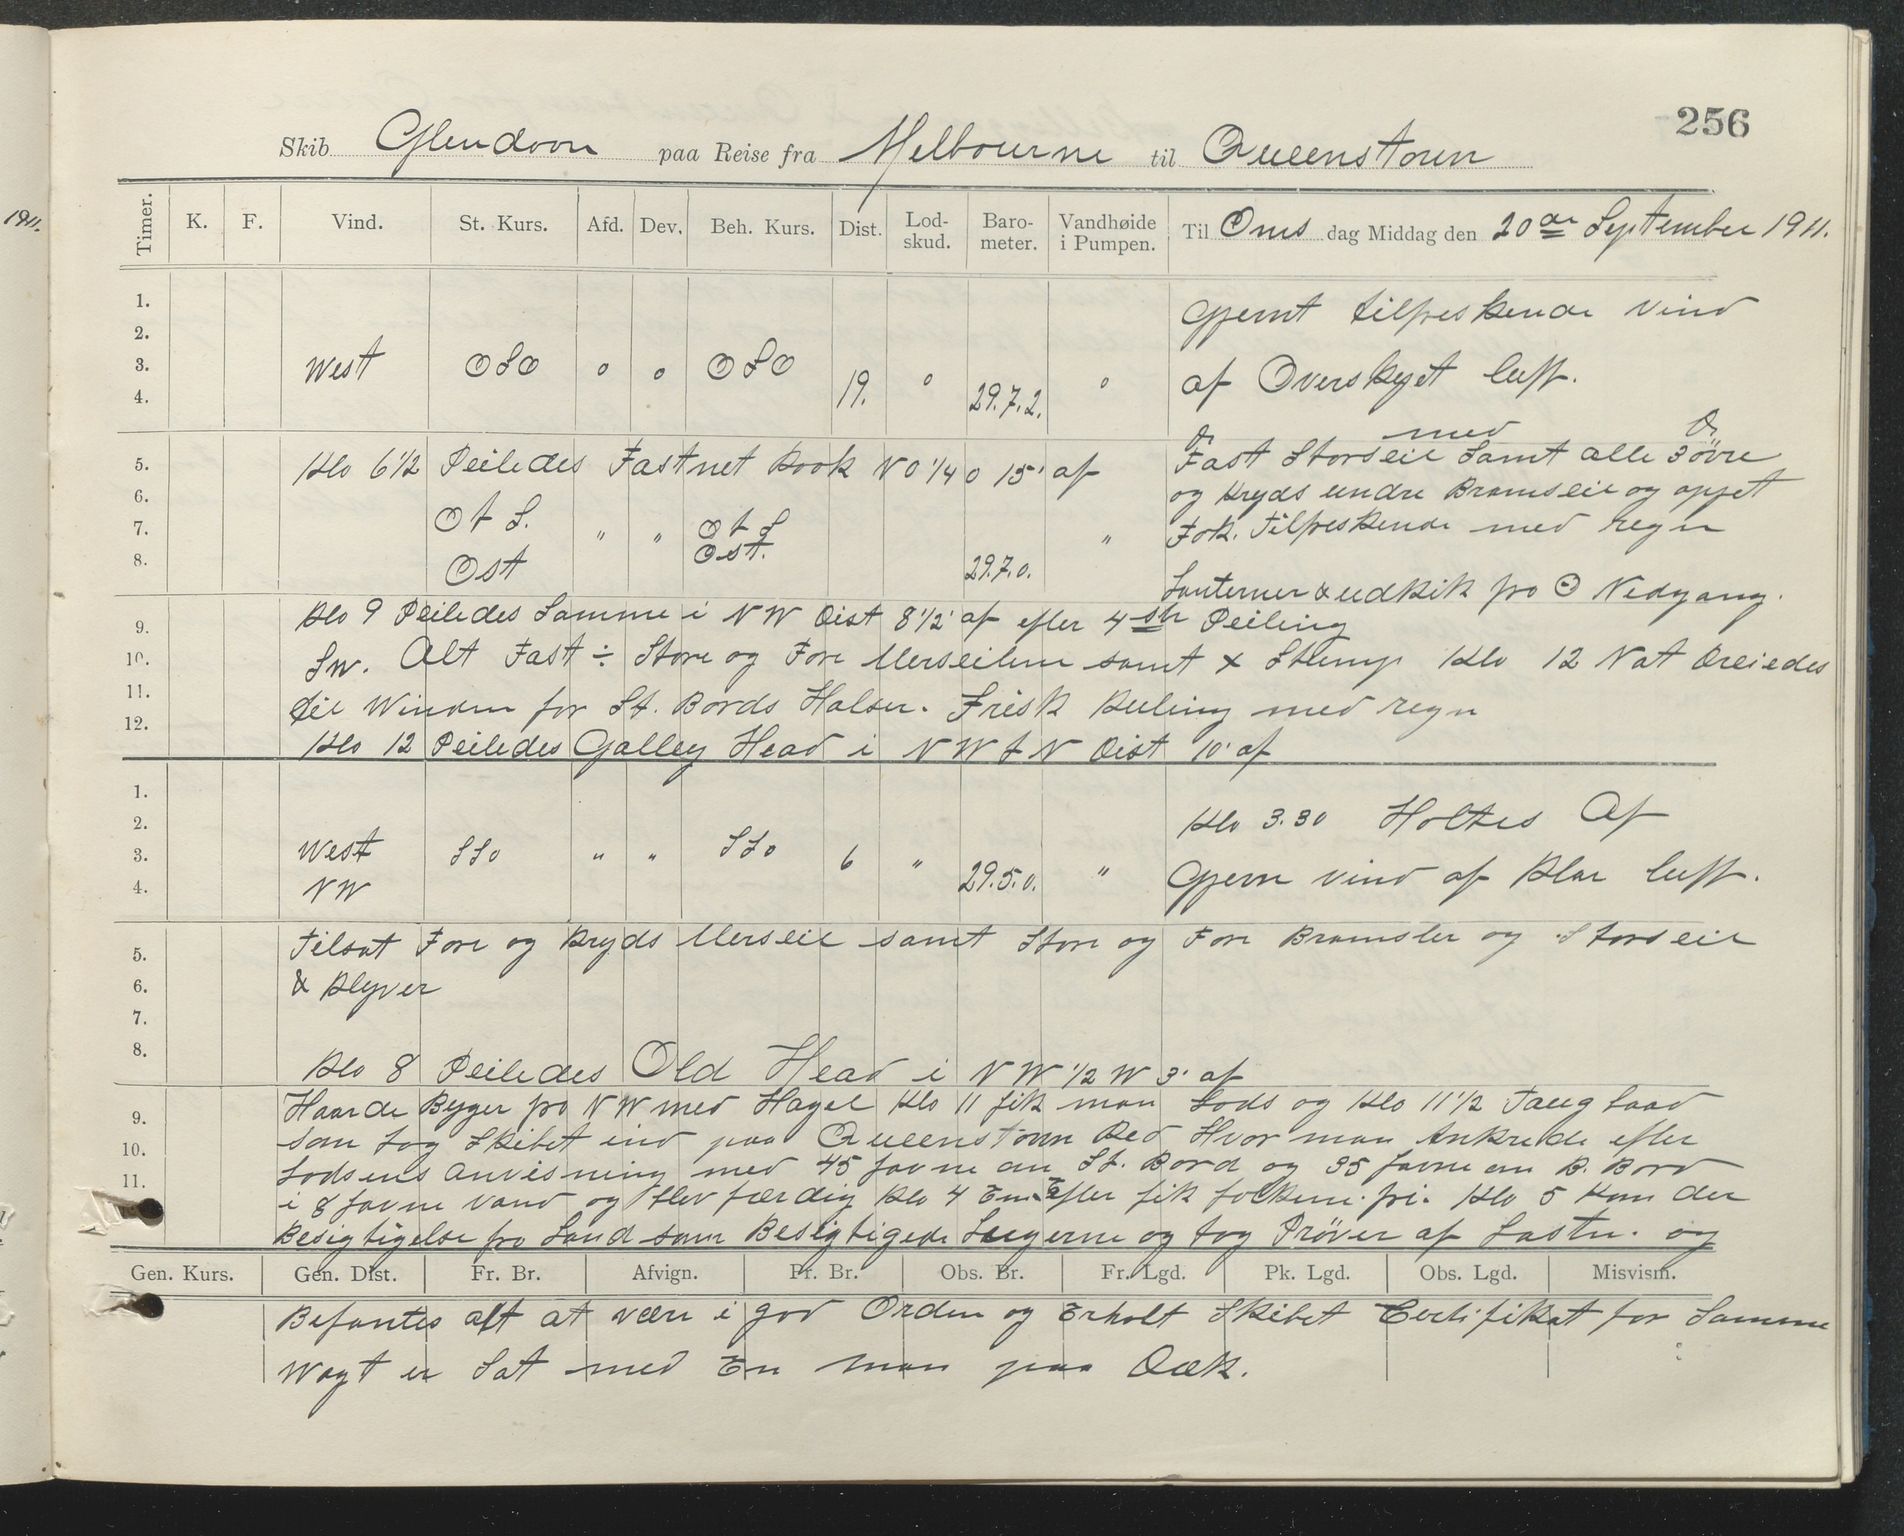 256
Skib Glendoon paa Reise fra Melbourne til Queenstown
1911.
Timer. K. F. Vind. St. Kurs. Afd. Dev. Beh. Kurs. Dist. Lod-skud. Baro-meter. Vandhøide i Pumpen. Til Ons dag Middag den 20de September 1911.
1. Gjemt tilfreskende vind
2.
3. West OSO o o OSO 19. o 29.7.2. o af Overskyet luft.
4.
med
5. Klo 6 1/2 Peiledes Fastnet Rook NO 1/4 O 15' af Fast Storseil Samt alle 3 övre
6. og Kryds undre Bramseil og opjet
7. O t S. " " O t S " Fok. Tilfreskende med regn
8. Ost Ost. 29.7.0.
Lanterner & udkik fro ☉ Nedgang.
9. Klo 9 Peiledes Samme i NW Dist 8 1/2' af efter 4 Peiling
10. Sw. Alt Fast ÷ Store og Fore Merseilene samt x Stump Klo 12 Nat Dreiedes
11. til Winden for St. Bords Halser. Frisk Kuling med regn
12. Klo 12 Peiledes Galley Head i NW t N Dist 10' af
1. Klo 3.30 Holtes Af
2.
3. West SSO " " SSO 6 " 29.5.0. " Gjevn vind af Klar luft.
4. NW
5. Tilsat Fore og Kryds Merseil samt Store og Fore Bramsler og Storseil
6. & Klyver
7.
8. Klo 8 Peiledes Old Head i NW 1/2 W 3' af
9. Haarde Byger fro NW med Hagel Klo 11 fik man Lods og Klo 11 1/2 Taugbaad
10. som tog Skibet ind paa Queenstown Red Hvor man Ankrede efter
11. Lodsens anvisning med 45 favne om St. Bord og 35 favne om B. Bord
i 8 favne vand og blev færdig Klo 4 Em. Efter fik folkene fri. Klo 5 Kom der
Besigtigelse fro Land som Besigtigede Lugerne og tog Pröver af Lastn. og
Gen. Kurs. Gen. Dist. Fr. Br. Afvign. Pr. Br. Obs. Br. Fr. Lgd. Pk. Lgd. Obs. Lgd. Misvism.
Befantes alt at være i god Orden og Erholt Skibet Certifikat for Samme
Wagt er Sat med En man paa Dæk.